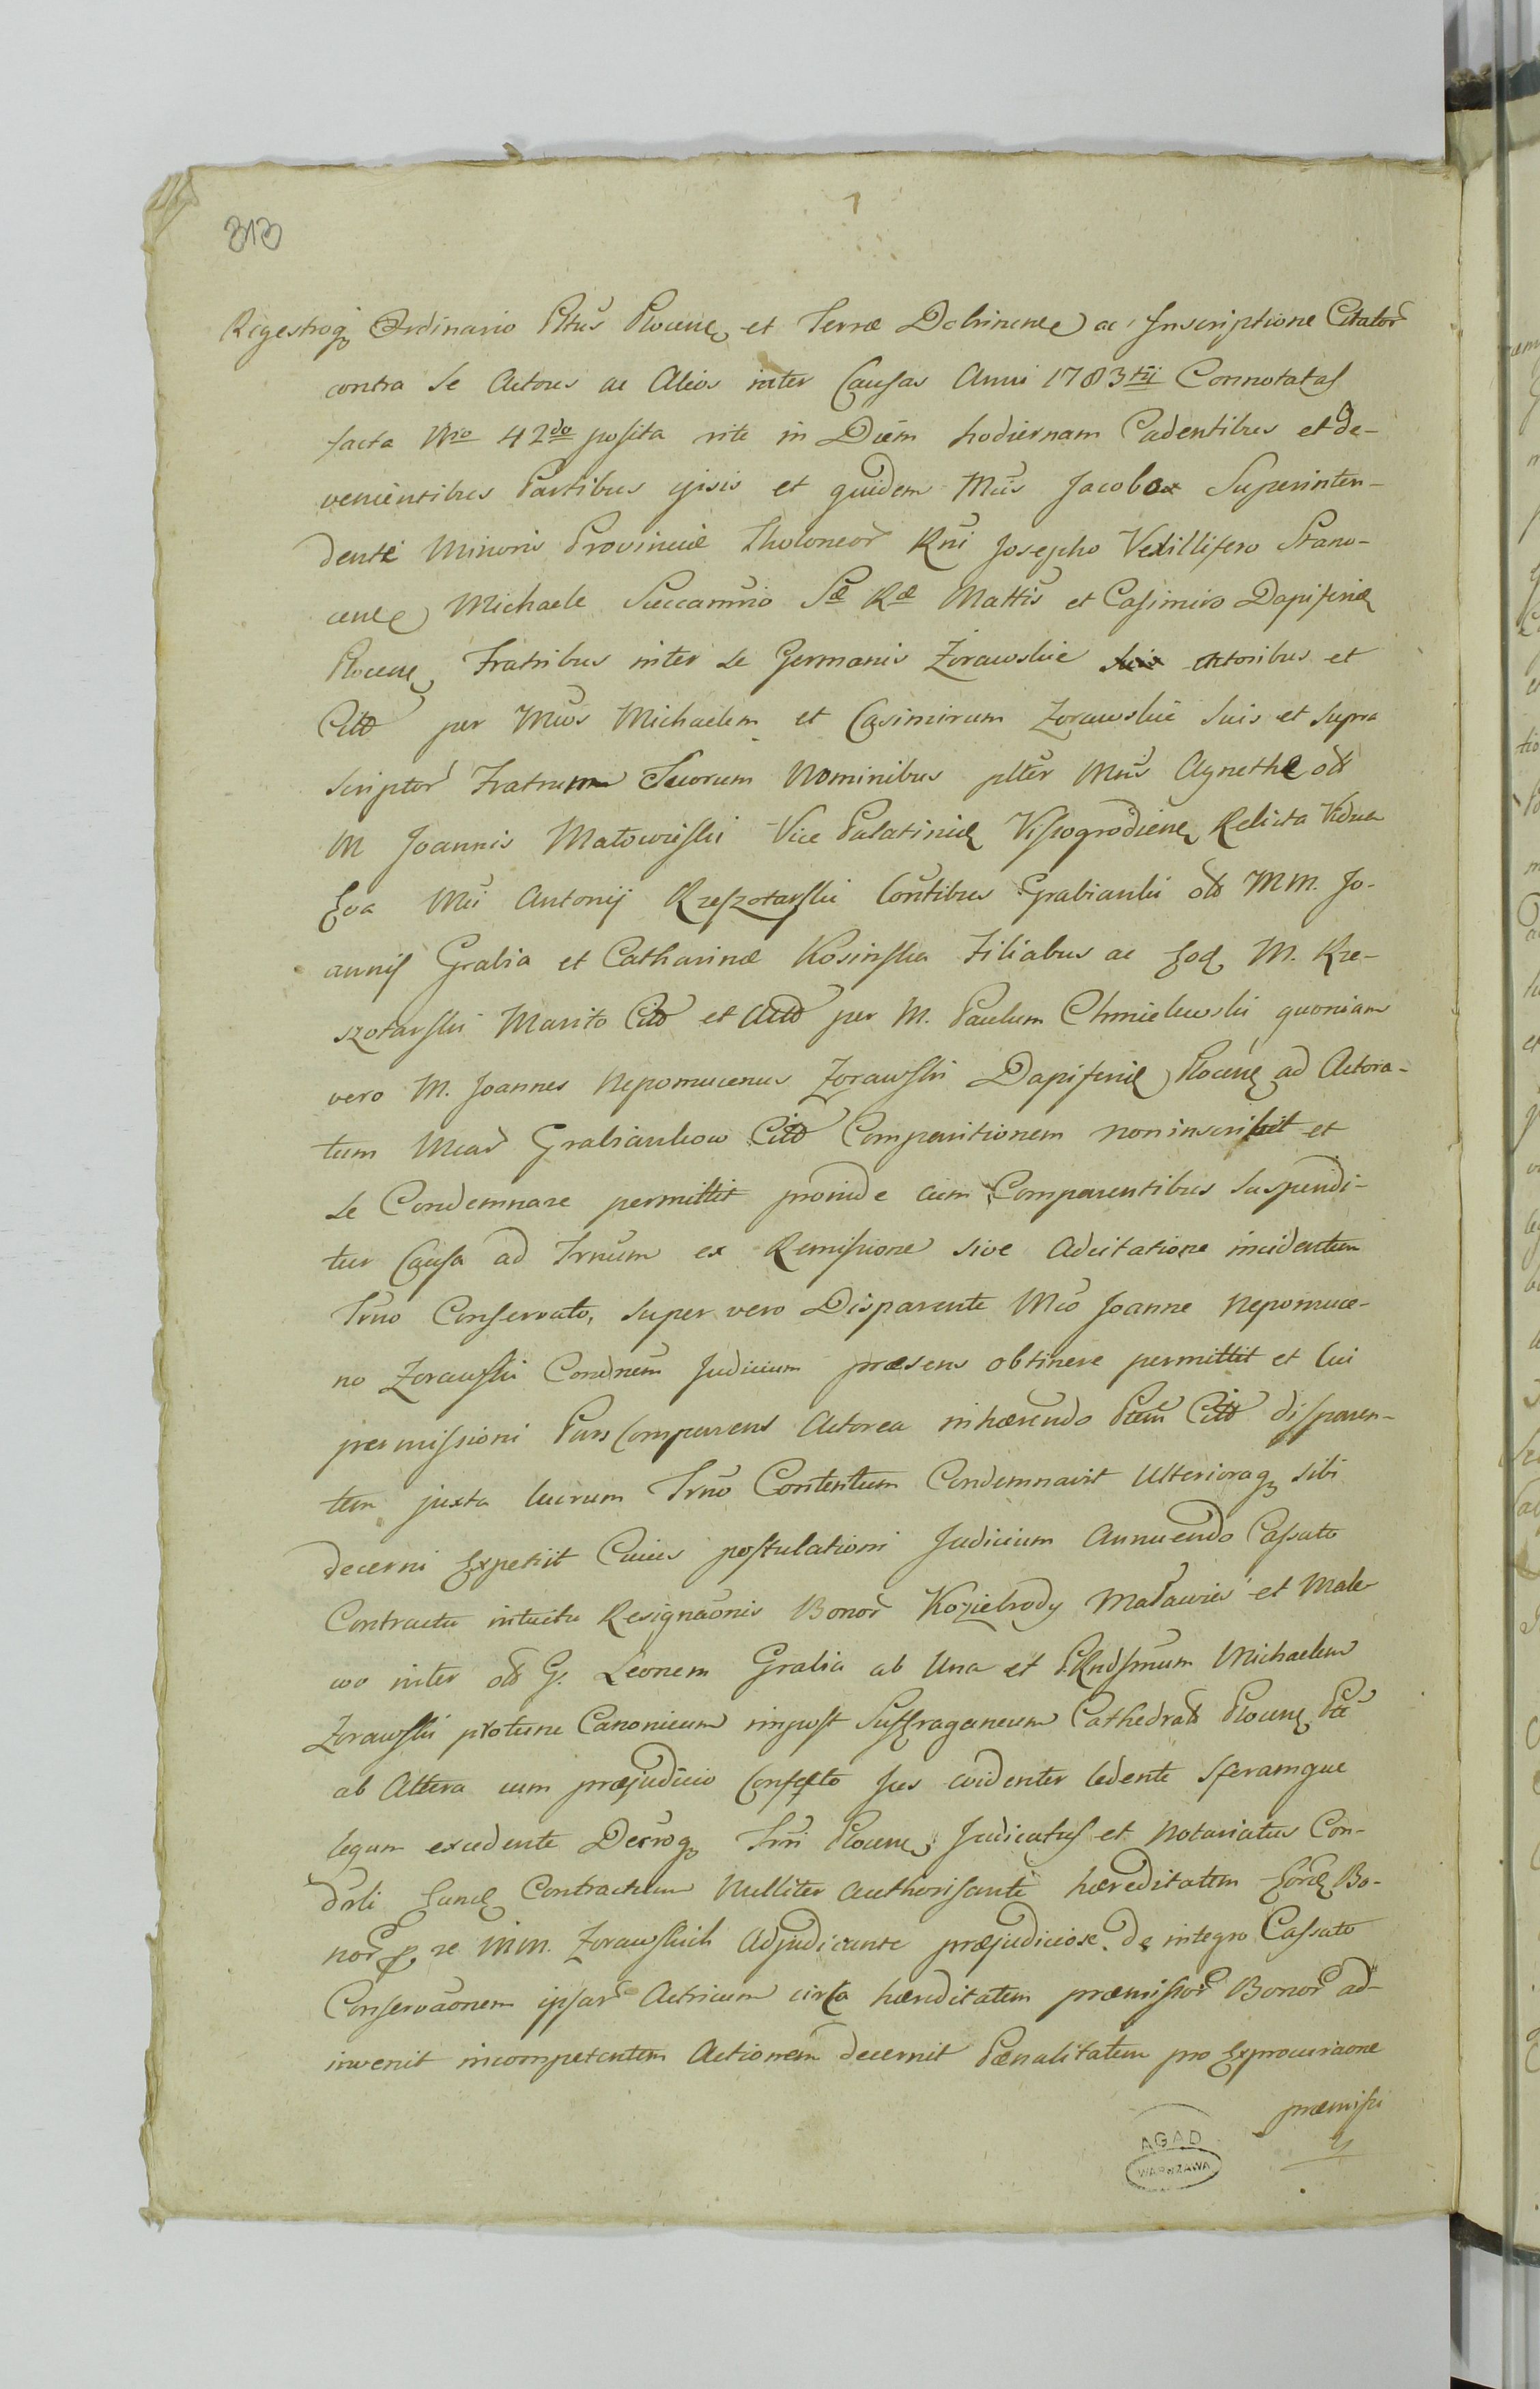 313
Regestroq Ordinario Pttus Plocen et Terræ Dobrinen ac Inscriptione Citator
contra se Actores ac Alios inter Causas Anni 1783tij Connotatas
facta Nro 42do posita rite in Diem hodiernam Cadentibus et de-
venientibus Partibus ipsis et quidem Mcis Jacobo Superinten-
dente Minoris Provinciæ Theloneor Rni Josepho Vexillifero Srano-
cen Michaele Succamrio Sæ Ræ Mattis et Casimiro Dapiferid
Plocen Fratribus inter se Germanis Zorawskie Actoribus et
Citt per Mcos Michaelem et Casimirum Zorawskie suis et supra
scriptor Fratrum Suorum Nominibus ptter Mcis Agnethe ott
M Joannis Małowieski Vice Palatinid Wyszogrodien Relicta Vidua
Eva Mci Antonij Rzeszotarski Contibus Grabianki ott MM. Jo-
annis Grabia et Catharinæ Kosinska Filiabus ac Eod M. Rze-
szotarski Marito Citt et Actt per M. Paulum Chmielewski quoniam
vero M. Joannes Nepomucenus Zorawski Dapiferid Plocen ad Actora-
tum Mcar Grabiankow Citt Comparitionem non inscribit et
se Condemnare permittit proinde cum Comparentibus suspendi-
tur Causa ad Trnum ex Remissione sive Adcitatione incidentem
Trno Conservato, super vero Disparente Mco Joanne Nepomuce-
no Zorawski Condnem Judicium præsens obtinere permittit et Cui
permissioni Pars Comparens Actorea inhærendo Ptem Citt disparen-
tem juxta lucrum Trno Contentum Condemnavit Ulterioraq sibi
decerni Expetiit Cuius postulationi Judicium Annuendo Cassato
Contractu intuitu Resignaonis Bonor Koziebrody Maławies et Male
wo inter ott G. Leonem Grabia ab Una et Rndssmum Michaelem
Zorawski protunc Canonicum impost Suffraganeum Cathedralt Plocen Pte
ab Altera cum præjudicio Confecto Jus evidenter ledente sferamque
legum excedente Decroq Trni Plocen Judicatus et Notariatus Con-
drli Eund Contractum Nulliter Authorisante hæreditatem Eord Bo-
nor p re MM. Zorawskich Adjudicante præjudiciose de integro Cassato
Conservaonem ipsar Actricum circa hæreditatem præmissor Bonor ad-
invenit incompetentem Actionem decernit Pænalitatem pro Exprocuraone
præmissi
AGAD
WARSZAWA